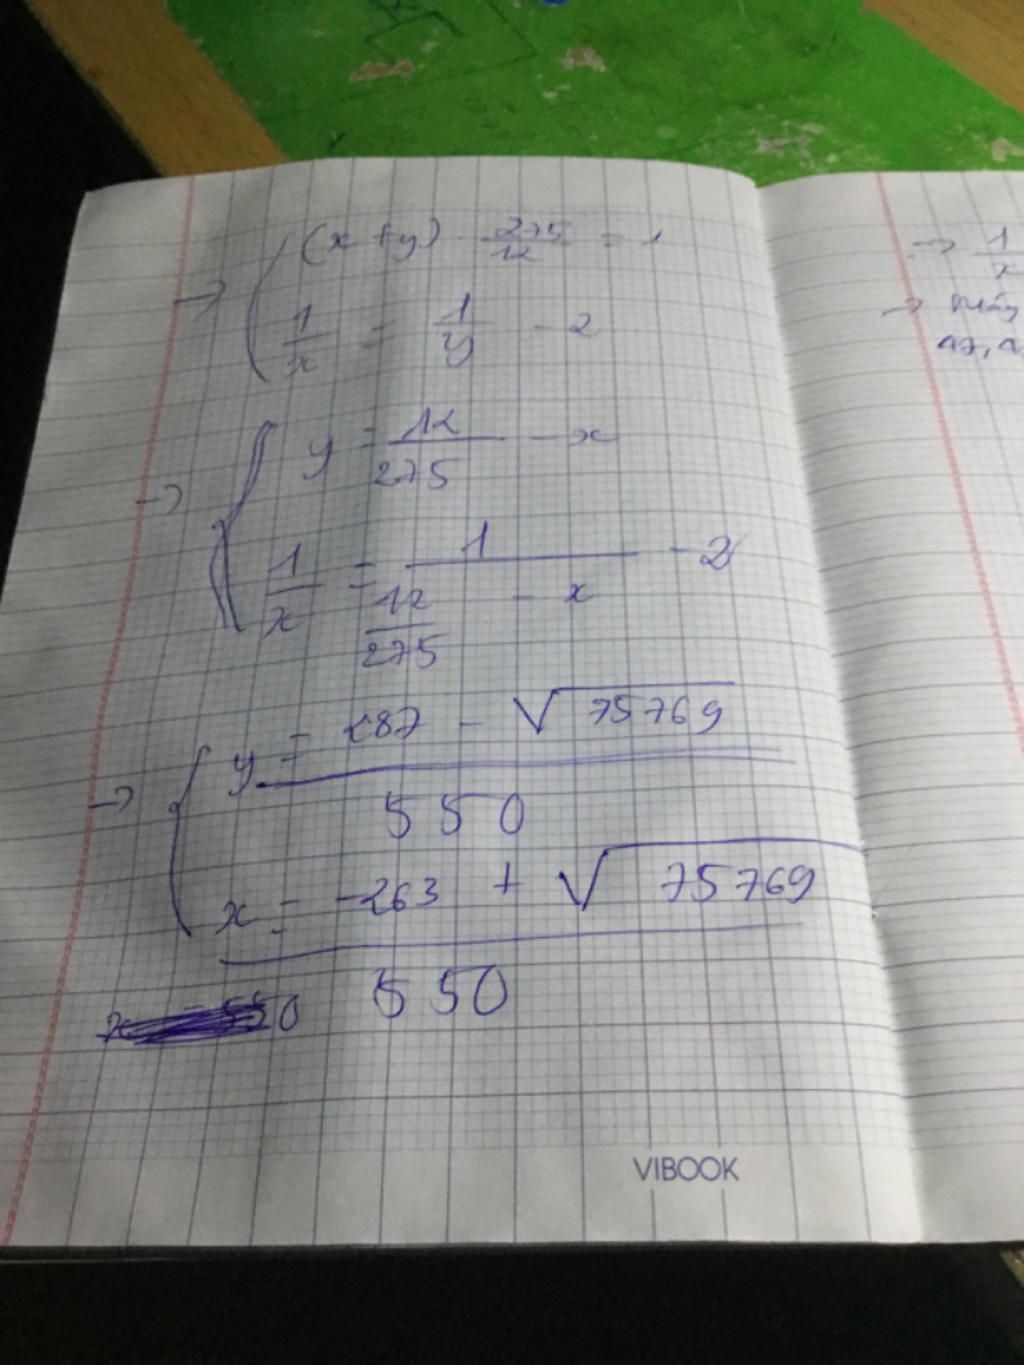 → { (x + y) · 275/12 = 1
1/x = 1/y - 2
→ { y = 12/275 - x
1/x = 1/(12/275 - x) - 2
→ { y = (287 - √75769)/550
x = (-263 + √75769)/550
→ 1/x
→ Máy
VIBOOK